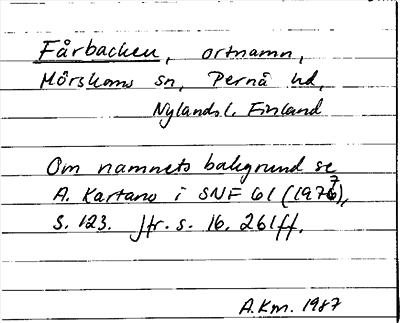 Fårbacken, ortnamn,
Mörskoms sn, Pernå hd,
Nylands l. Finland
Om namnets bakgrund se
A. Kartano i SNF 61 (1977),
s. 123. Jfr. s. 16, 261ff.
A.Km. 1987